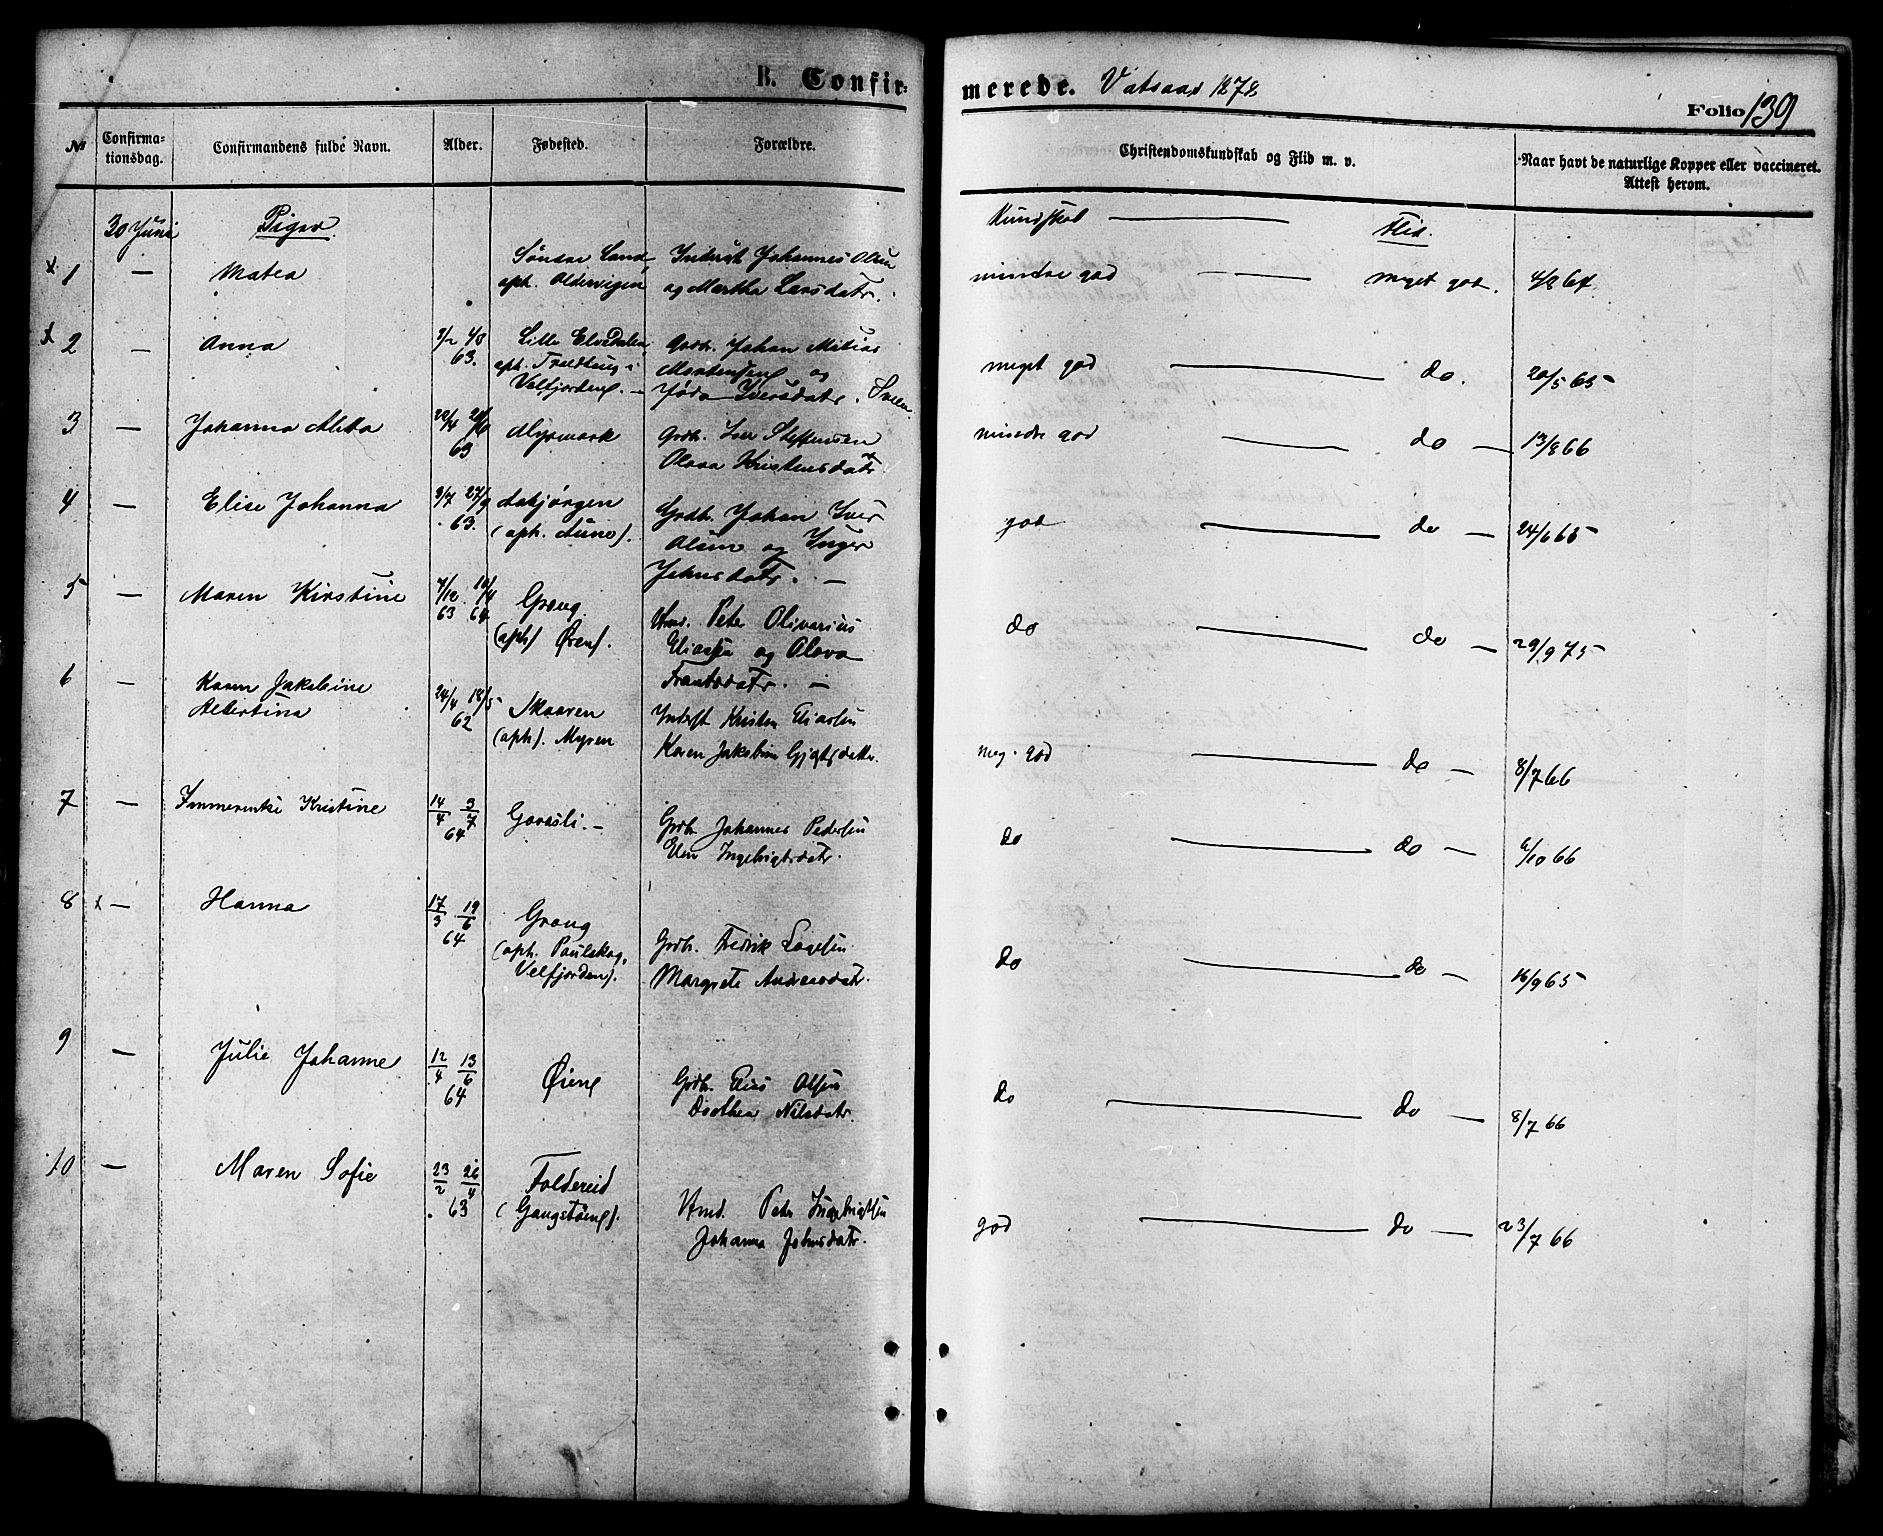 B. Confir-
merede. Vatsaas 1878
Folio 139
№
Confirma-
tionsdag.
Confirmandens fulde Navn.
Alder.
Fødested.
Forældre.
Christendomskundskab og Flid m. v.
Naar havt de naturlige Kopper eller vaccineret.
Attest herom.
30 Juni
Piger
Kundskab — Flid.
x 1 — Matea
Søndre Land
oph. Oldervigen
Inderst Johannes Olsen
og Martha Larsdatr.
mindre god — — meget god.
4/8 67.
x 2 — Anna
63.
Lille
oph.
Velfjorden. —
Grdb. Johan Matias
Mortensen og
Iversdatr.
meget god — do.
20/5 65
3 — Johanna
63
Myrmark
Grdb. Iver Steffensen
Olava Kristensdatr
mindre god — do —
13/8 66
4 — Elise Johanna
3/7 27/9
63.
(oph. Aune).
Grdb. Johan Iver
Olsen og Inger
Johnsdatr. —
god — do —
24/6 65
5 — Maren Kirstine
7/12 10/4
63 64
Grong
(oph) Øien.
Hmd. Peter Olivarius
Eliassen og Olava
Frantsdatr. —
do — do —
29/9 75
6 — Karen Jakobine
Albertina
24/4 18/5
62
Skaaren
(oph). Myren
Inderst Kristen Eliassen
Karen Jakobine
meg. god — do —
8/7 66
7 — Immerentse Kristine
14/4 3/7
64
Gaasli. —
Grdb. Johannes Pedersen
Elen Ingebrigtsdatr.
do — do —
9/10 66
8 x — Hanna
17/3 19/6
64
Grong
(oph. Paulskog,
Velfjorden).
Grdb. Fredrik
Margrete Andreasdatr.
do — do —
16/9 65
9 — Julie Johanne
12/4 13/6
64
Øien
Grdb. Elias Olsen
Dorthea Nilsdatr.
do — do —
8/7 66
10 — Maren Sofie
23/2 26/4
63
Foldereid
(Gangstøen).
Hmd. Peter Ingebrigtsen
Johanna Johnsdatr.
god — do —
23/7 66